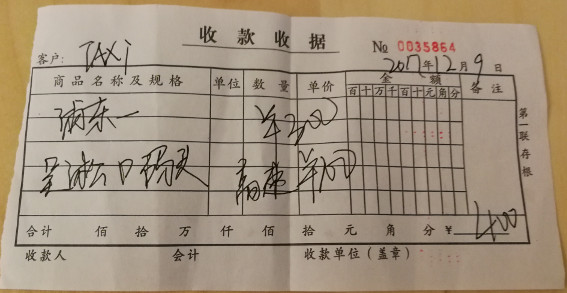 收款收据 № 0035864
客户: TAXI 2017年12月9日
商品名称及规格 单位 数量 单价 金额 备注
百十万千百十元角分
浦东一 ¥300
吴淞口码头 高速 ¥100
合计 佰 拾 万 仟 佰 拾 元 角 分 ¥ 400
收款人 会计 收款单位(盖章)
第一联存根